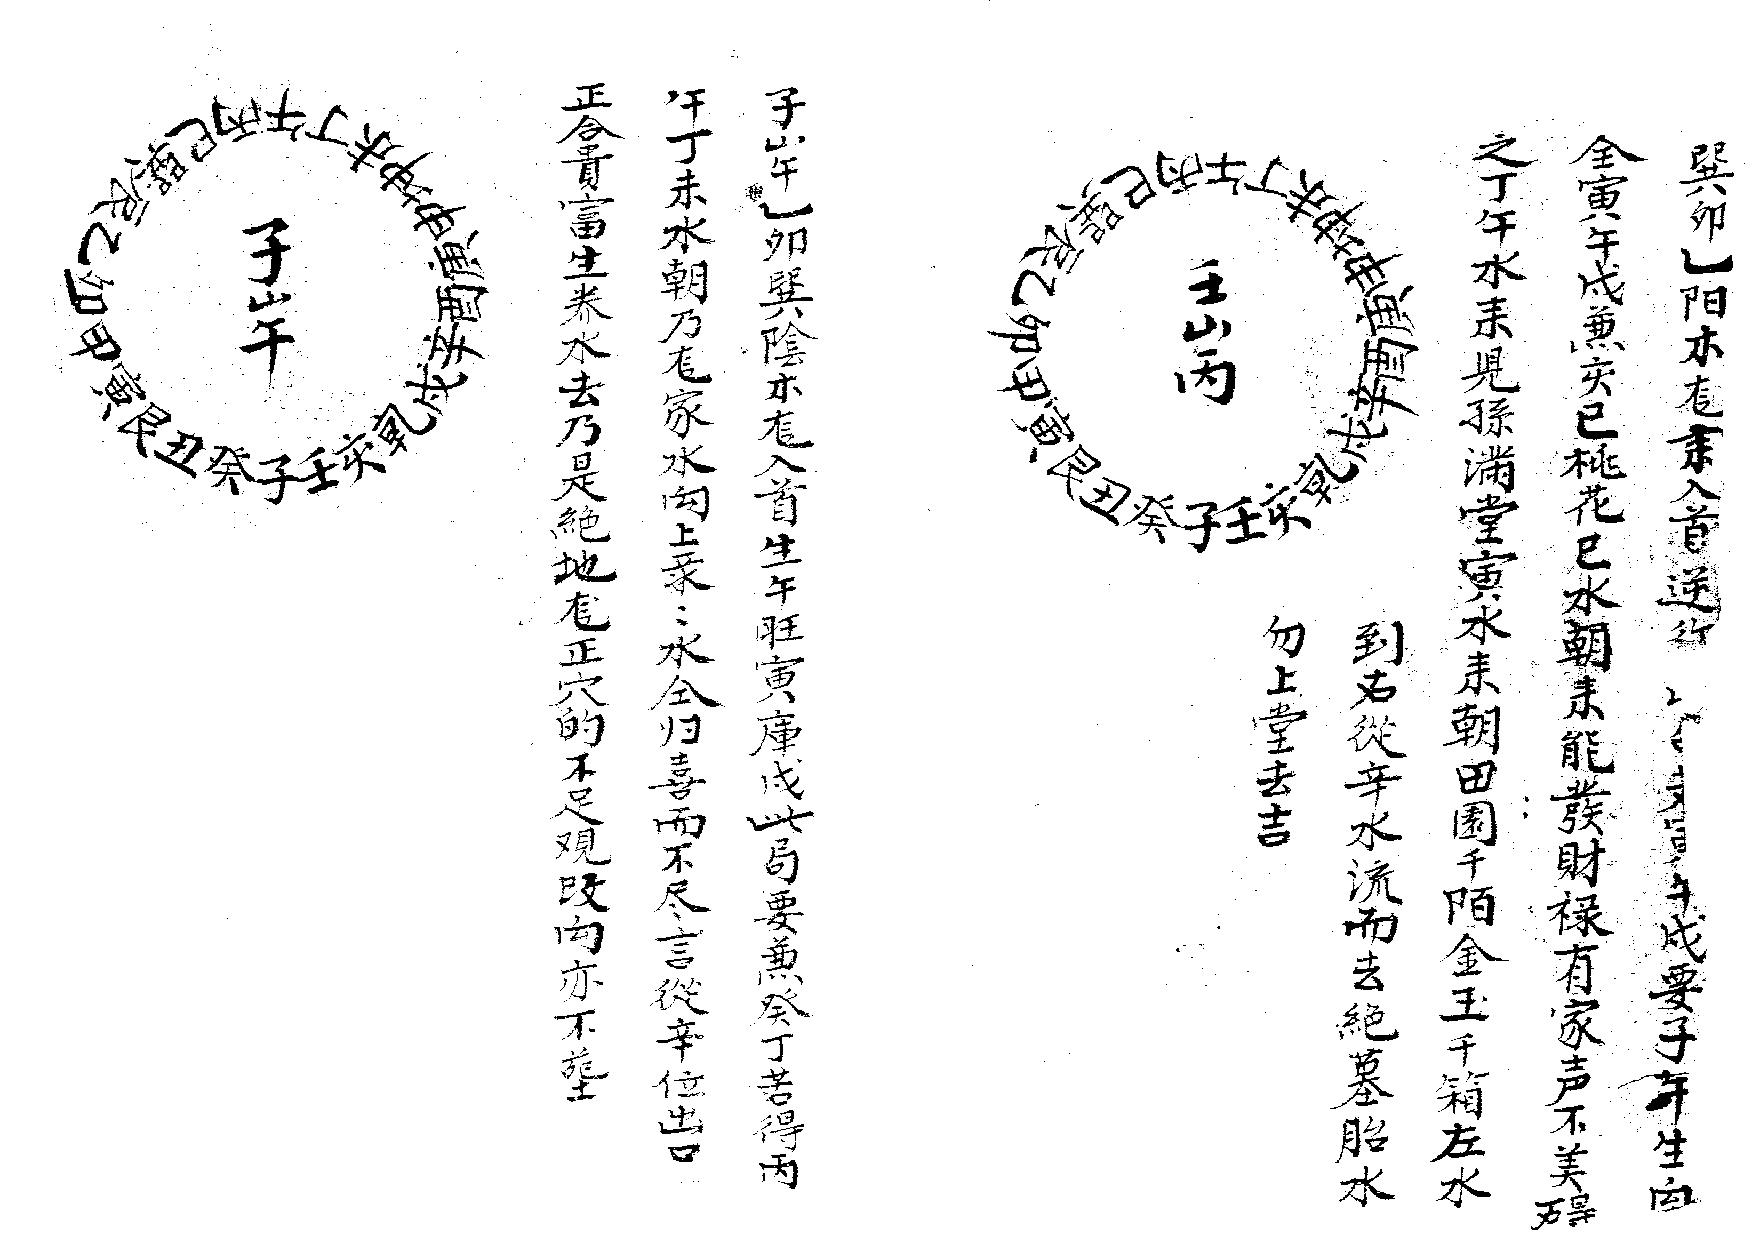 巽卯】阳木龙来入首逆行 午戌要子午生向
全寅午戌兼亥巳桃花巳水朝来能發財禄有家声不美碍
之丁午水来児孫満堂寅水来朝田園千陌金玉千箱左水
到右從辛水流而去絶墓胎水
勿上堂去吉
壬山丙
午丁未坤申庚酉辛戌乾亥壬子癸丑艮寅甲卯乙辰巽巳丙
子山午】卯巽陰木龙入首生午旺寅庫戌此局要兼癸丁若得丙
午丁未水朝乃龙家水向上来〻水全归喜而不尽言從辛位出口
正合貴富生养水去乃是絶地龙正穴的不足观改向亦不塟
子山午
午丁未坤申庚酉辛戌乾亥壬子癸丑艮寅甲卯乙辰巽巳丙